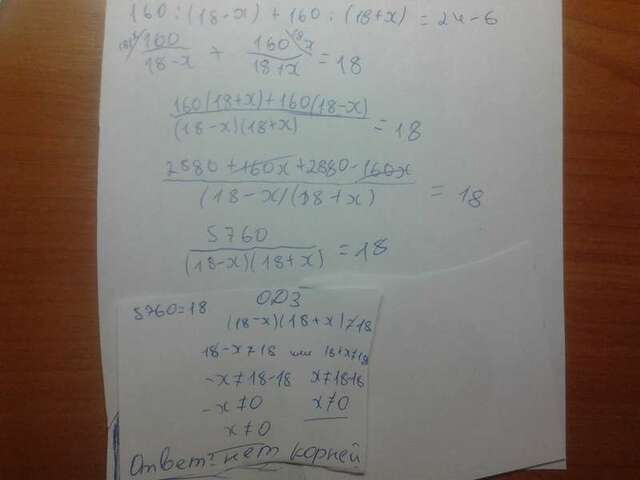 160 : (18-x) + 160 : (18+x) = 24-6
160/(18-x) + 160/(18+x) = 18
(160(18+x)+160(18-x))/((18-x)(18+x)) = 18
(2880+160x+2880-160x)/((18-x)(18+x)) = 18
5760/((18-x)(18+x)) = 18
5760=18 ОДЗ
(18-x)(18+x)≠18
18-x≠18 или 18+x≠18
-x≠18-18 x≠18-18
-x≠0 x≠0
x≠0
Ответ: нет корней